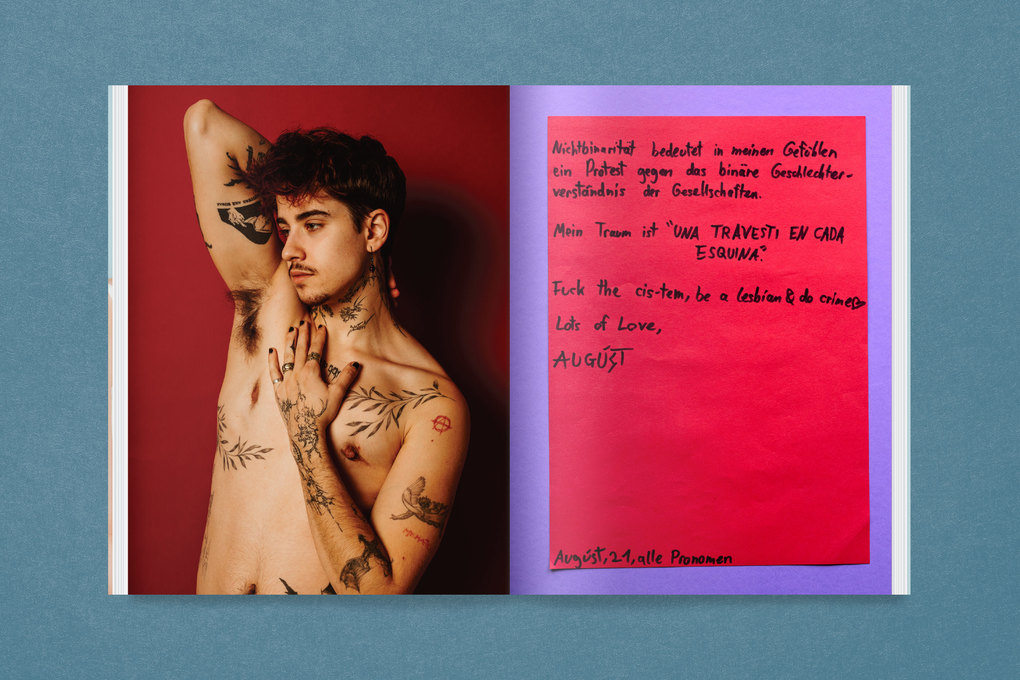 Nichtbinarität bedeutet in meinen Gefühlen
ein Protest gegen das binäre Geschlechter-
verständnis der Gesellschaften.
Mein Traum ist "UNA TRAVESTI EN CADA
ESQUINA."
Fuck the cis-tem, be a lesbian & do crime
Lots of Love,
AUGÚST
Augúst, 21, alle Pronomen